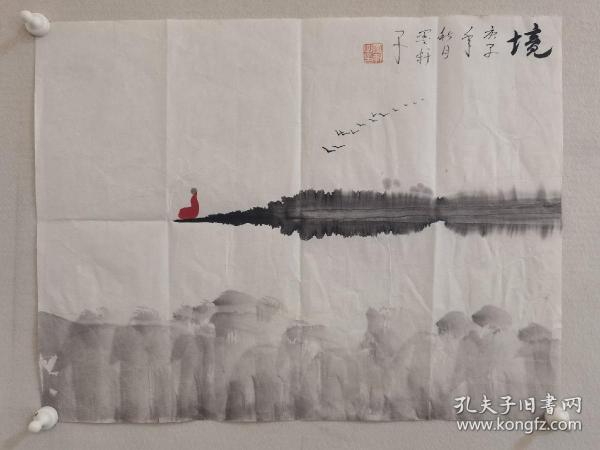 境
庚子
年
秋月
墨轩
于
孔夫子旧书网
www.kongfz.com